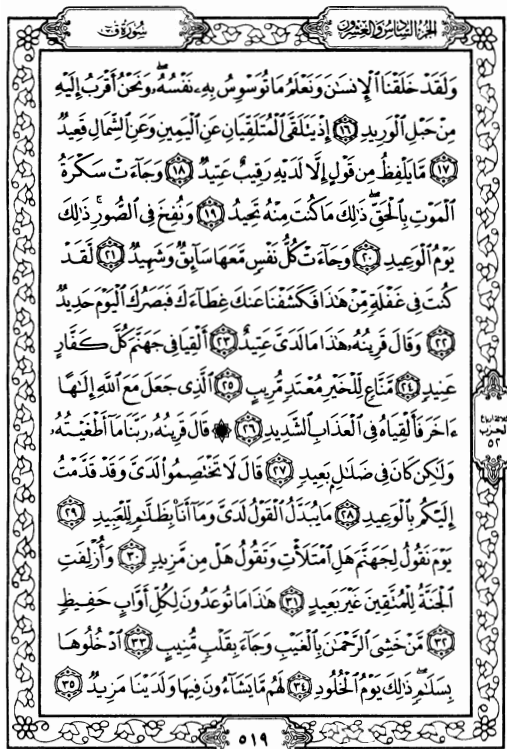 الجزء السادس والعشرون
سورة ق
وَلَقَدْ خَلَقْنَا ٱلْإِنسَـٰنَ وَنَعْلَمُ مَا تُوَسْوِسُ بِهِۦ نَفْسُهُۥ ۖ وَنَحْنُ أَقْرَبُ إِلَيْهِ
مِنْ حَبْلِ ٱلْوَرِيدِ ١٦ إِذْ يَتَلَقَّى ٱلْمُتَلَقِّيَانِ عَنِ ٱلْيَمِينِ وَعَنِ ٱلشِّمَالِ قَعِيدٌ
١٧ مَّا يَلْفِظُ مِن قَوْلٍ إِلَّا لَدَيْهِ رَقِيبٌ عَتِيدٌ ١٨ وَجَآءَتْ سَكْرَةُ
ٱلْمَوْتِ بِٱلْحَقِّ ۖ ذَٰلِكَ مَا كُنتَ مِنْهُ تَحِيدُ ١٩ وَنُفِخَ فِى ٱلصُّورِ ۚ ذَٰلِكَ
يَوْمُ ٱلْوَعِيدِ ٢٠ وَجَآءَتْ كُلُّ نَفْسٍ مَّعَهَا سَآئِقٌ وَشَهِيدٌ ٢١ لَّقَدْ
كُنتَ فِى غَفْلَةٍ مِّنْ هَـٰذَا فَكَشَفْنَا عَنكَ غِطَآءَكَ فَبَصَرُكَ ٱلْيَوْمَ حَدِيدٌ
٢٢ وَقَالَ قَرِينُهُۥ هَـٰذَا مَا لَدَىَّ عَتِيدٌ ٢٣ أَلْقِيَا فِى جَهَنَّمَ كُلَّ كَفَّارٍ
عَنِيدٍ ٢٤ مَّنَّاعٍ لِّلْخَيْرِ مُعْتَدٍ مُّرِيبٍ ٢٥ ٱلَّذِى جَعَلَ مَعَ ٱللَّهِ إِلَـٰهًا
ءَاخَرَ فَأَلْقِيَاهُ فِى ٱلْعَذَابِ ٱلشَّدِيدِ ٢٦ ۞ قَالَ قَرِينُهُۥ رَبَّنَا مَآ أَطْغَيْتُهُۥ
وَلَـٰكِن كَانَ فِى ضَلَـٰلٍۭ بَعِيدٍ ٢٧ قَالَ لَا تَخْتَصِمُوا۟ لَدَىَّ وَقَدْ قَدَّمْتُ
إِلَيْكُم بِٱلْوَعِيدِ ٢٨ مَا يُبَدَّلُ ٱلْقَوْلُ لَدَىَّ وَمَآ أَنَا۠ بِظَلَّـٰمٍ لِّلْعَبِيدِ ٢٩
يَوْمَ نَقُولُ لِجَهَنَّمَ هَلِ ٱمْتَلَأْتِ وَتَقُولُ هَلْ مِن مَّزِيدٍ ٣٠ وَأُزْلِفَتِ
ٱلْجَنَّةُ لِلْمُتَّقِينَ غَيْرَ بَعِيدٍ ٣١ هَـٰذَا مَا تُوعَدُونَ لِكُلِّ أَوَّابٍ حَفِيظٍ
٣٢ مَّنْ خَشِىَ ٱلرَّحْمَـٰنَ بِٱلْغَيْبِ وَجَآءَ بِقَلْبٍ مُّنِيبٍ ٣٣ ٱدْخُلُوهَا
بِسَلَـٰمٍ ۖ ذَٰلِكَ يَوْمُ ٱلْخُلُودِ ٣٤ لَهُم مَّا يَشَآءُونَ فِيهَا وَلَدَيْنَا مَزِيدٌ ٣٥
الحزب
٥٢
٥١٩